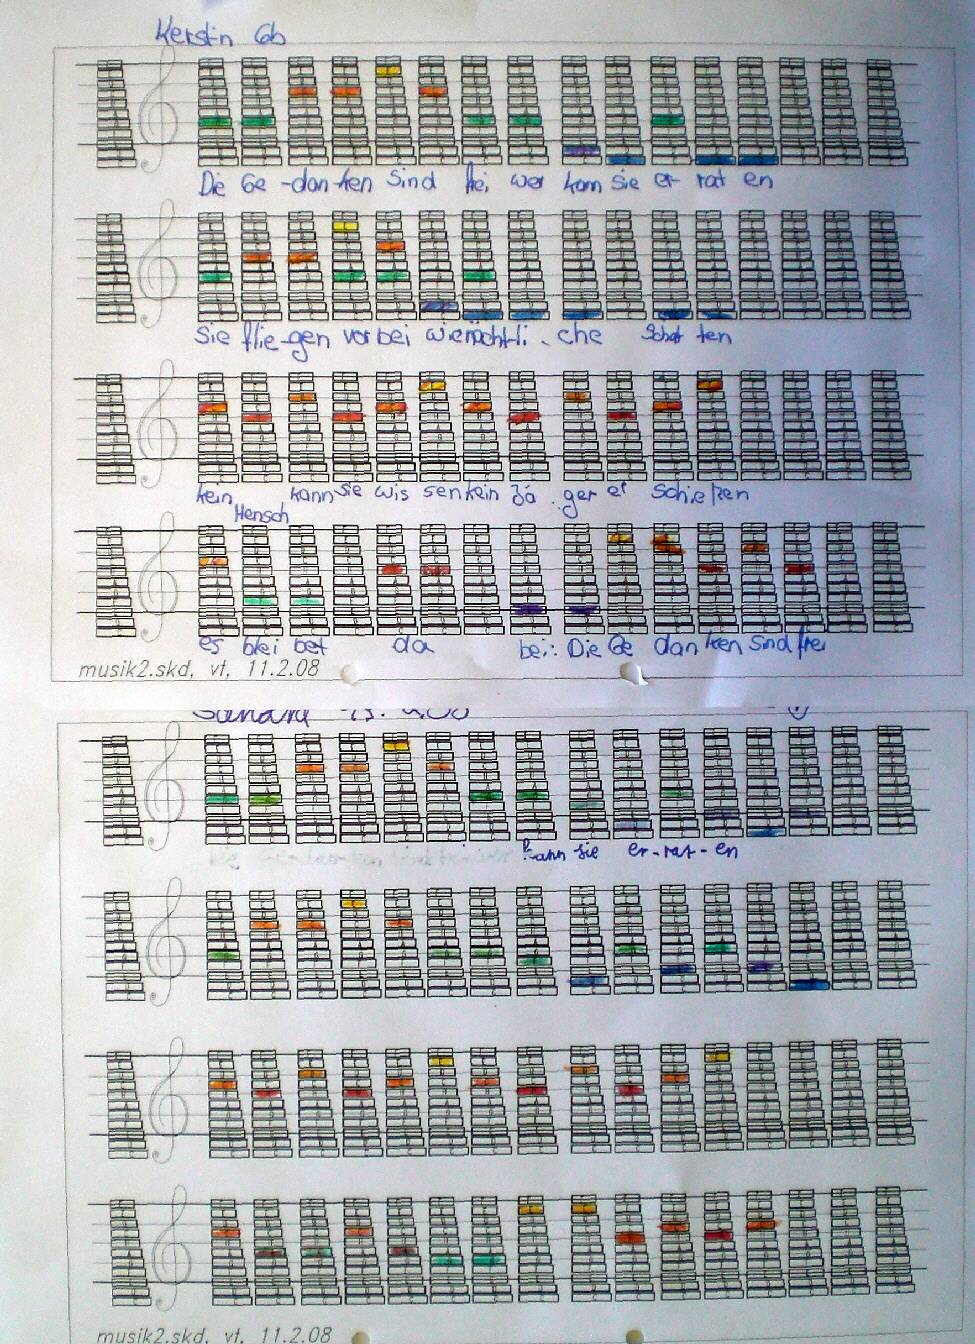 Kerstin 6b
Die Ge-danken sind frei wer kann sie er-rat en
Sie flie-gen vorbei wie nächtli-che Schat ten
kein Mensch kann sie wis sen kein Jä ger er schießen
es blei bet da bei: Die Ge danken sind frei
musik2.skd, vt, 11.2.08
kann sie er-rat-en
musik2.skd, vt, 11.2.08